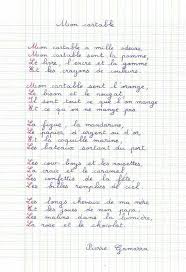 Mon cartable
Mon cartable a mille odeurs
Mon cartable sent la pomme,
Le livre, l'encre et gomme
Et les crayons de couleurs.
Mon cartable sent l'orange,
Le bison et le nougat,
Il sent tout ce que l'on mange
Et ce qu'on ne mange pas.
La figue, la mandarine,
Le papier d'argent ou d'or
Et la coquille marine,
Les bateaux sortant du port
Les cow-boys et les noisettes,
La craie et le caramel,
Les confettis de la fête,
Les billes remplies de ciel
Les longs cheveux de ma mère
Et les joues de mon papa,
Les matins dans la lumière,
La rose et le chocolat.
Pierre Gamarra